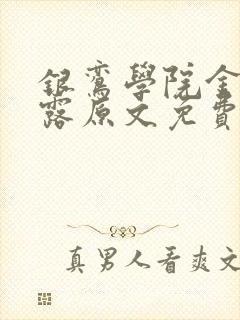 銀鸞學院金
露原文免費
真男人看爽文